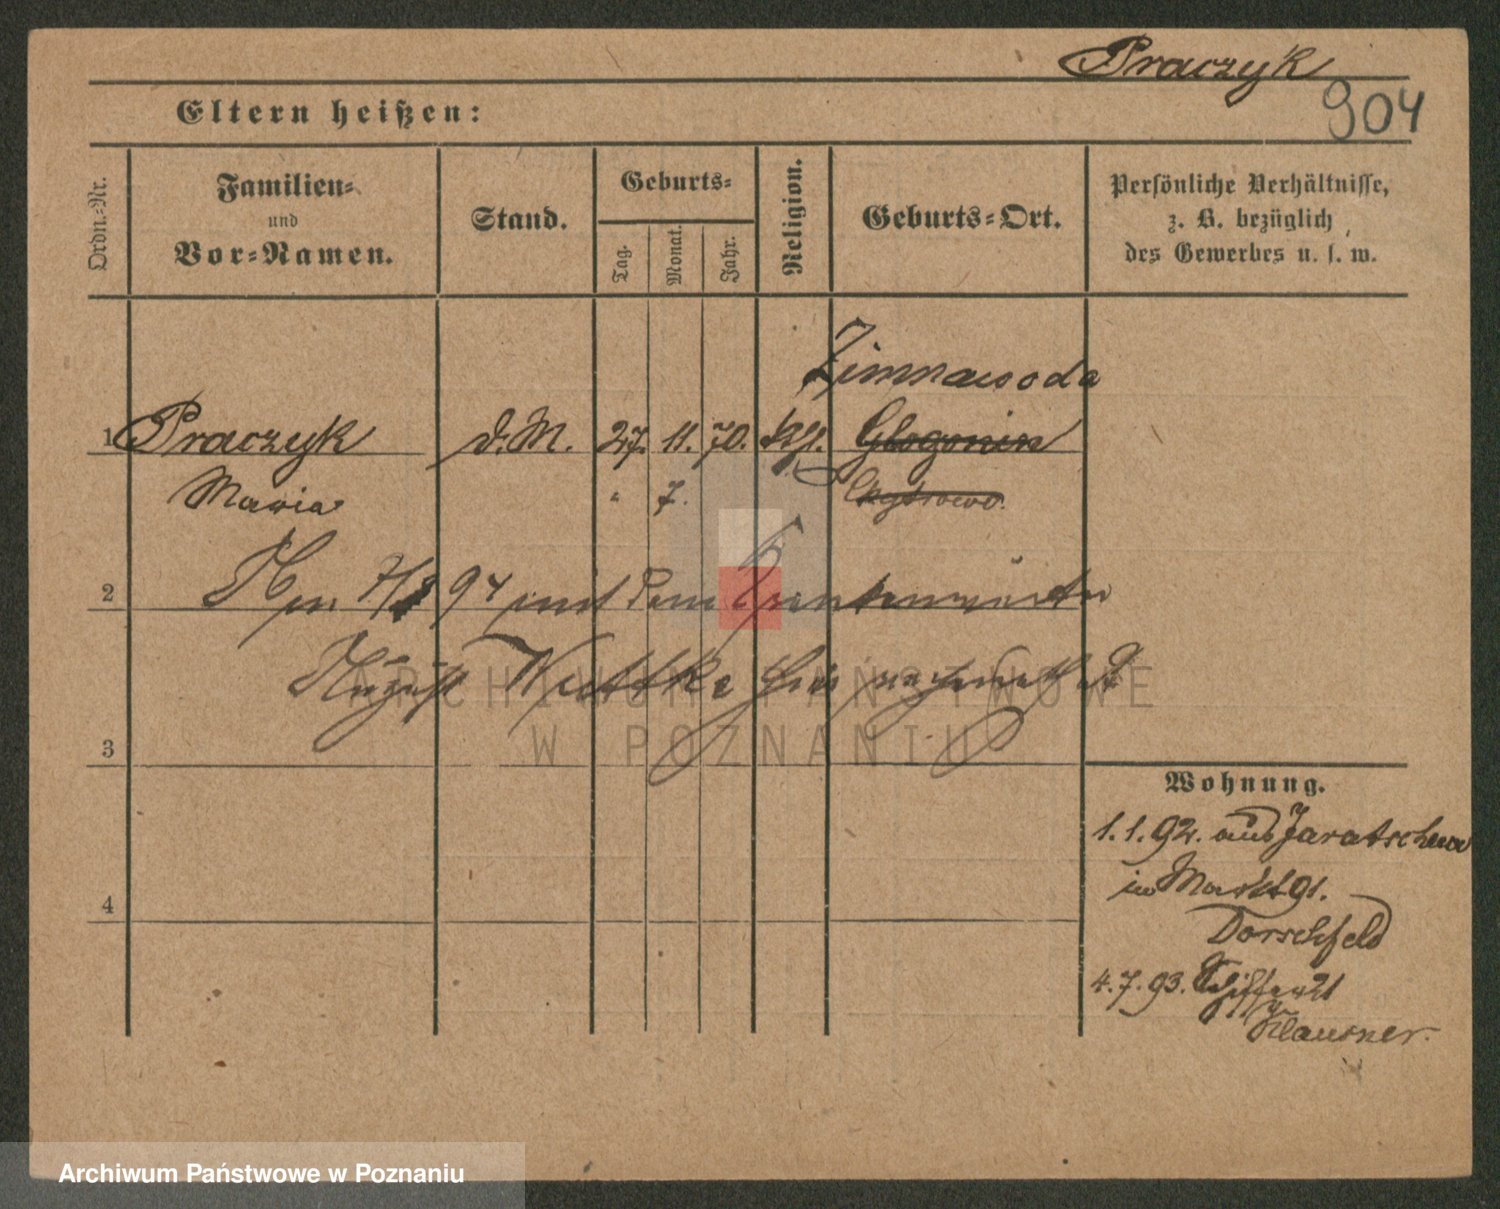 Praczyk
904
Eltern heißen:
Ordn.-Nr.
Familien-
und
Vor-Namen.
Stand.
Geburts-
Tag.
Monat.
Jahr.
Religion.
Geburts-Ort.
Persönliche Verhältnisse,
z. B. bezüglich
des Gewerbes u. s. w.
Zimnawoda
1 Praczyk d. M. 27. 11. 70. kth. Glogonin
Maria " 7.
2 Am 7/8 94 mit dem
August Wuttke hier verheirathet
ARCHIWUM PAŃSTWOWE
W POZNANIU
3
Wohnung.
1.1.92. aus Jaratschewo
in Markt 91.
Dorschfeld
4
4.7.93.
Klausner.
Archiwum Państwowe w Poznaniu